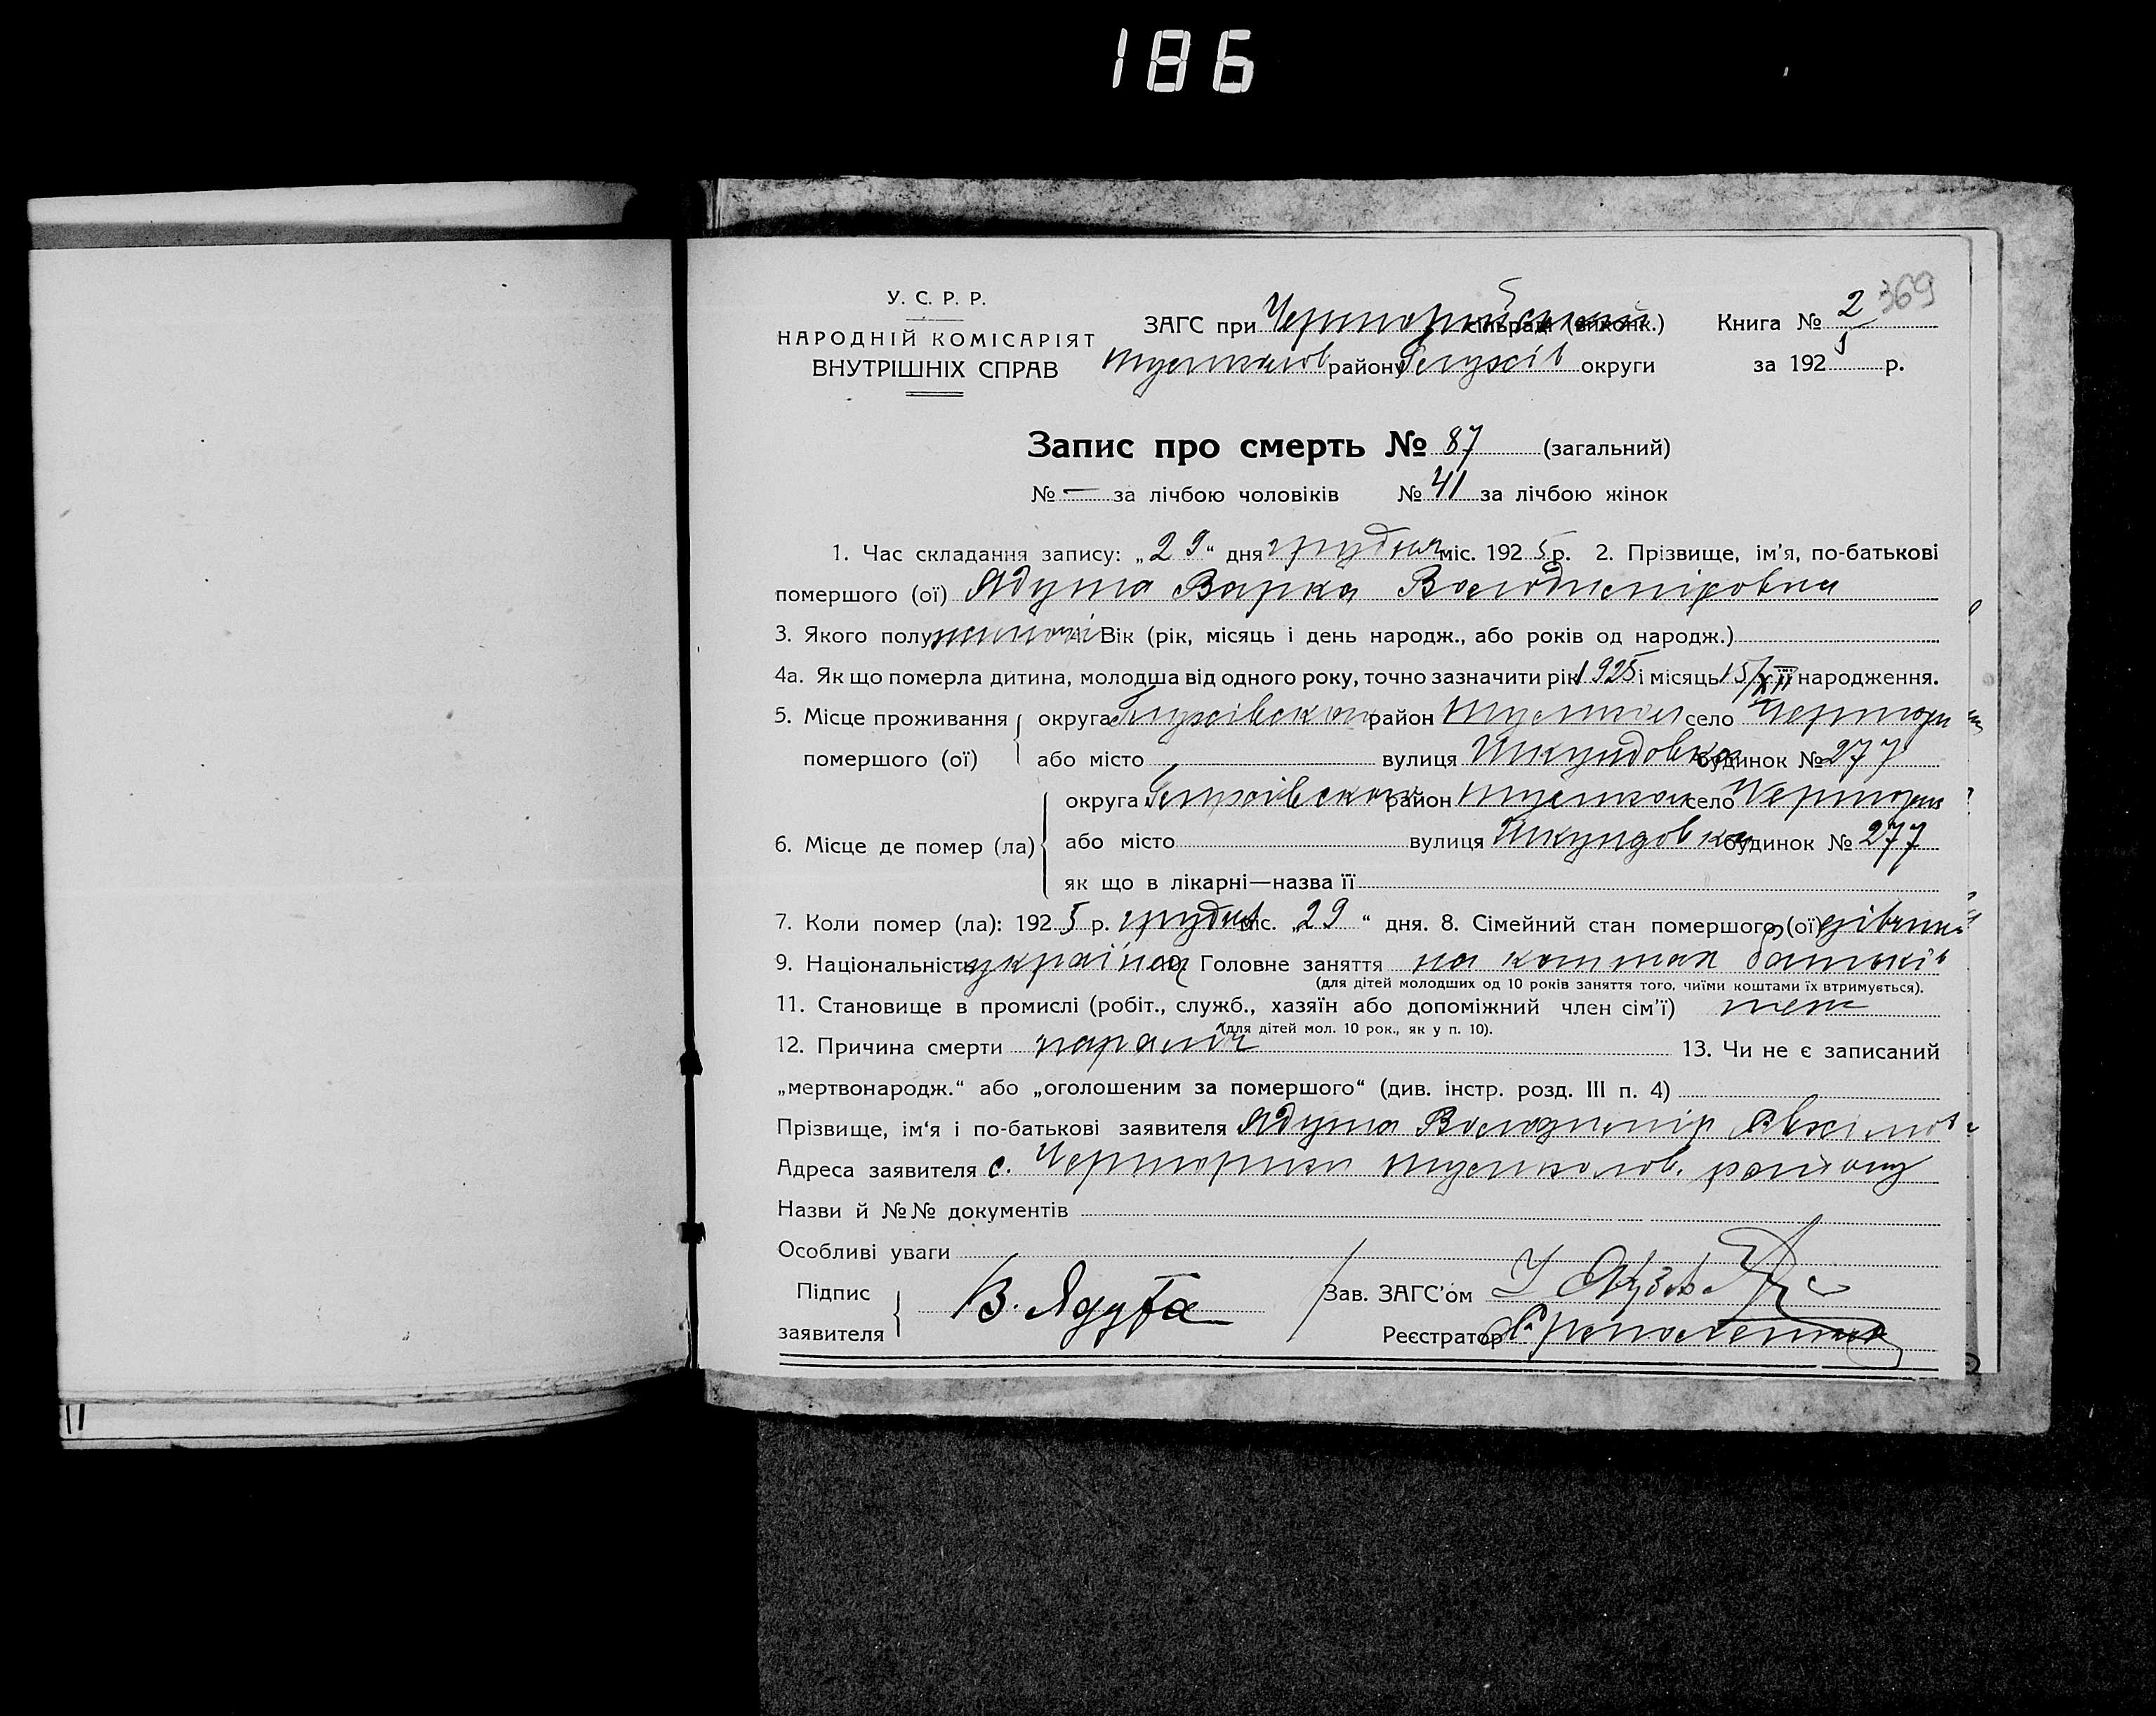 186
369
У. С. Р. Р.
НАРОДНІЙ КОМІСАРІЯТ
ВНУТРІШНІХ СПРАВ
ЗАГС при сільраді (виконк.) Книга № 2
району Глухів округи за 1925 р.
Запис про смерть № 87 (загальний)
№ — за лічбою чоловіків № 41 за лічбою жінок
1. Час складання запису: „29“ дня грудня міс. 1925 р. 2. Прізвище, ім'я, по-батькові
помершого (ої) Ядута Варка Володимировна
3. Якого полу жіночої Вік (рік, місяць і день народж., або років од народж.)
4а. Як що померла дитина, молодша від одного року, точно зазначити рік 1925 і місяць 15/XII народження.
5. Місце проживання округа Глухівська район село
помершого (ої) або місто вулиця будинок № 277
округа Глухівська район село
6. Місце де помер (ла) або місто вулиця будинок № 277
як що в лікарні—назва її
7. Коли помер (ла): 1925 р. грудня міс. „29“ дня. 8. Сімейний стан помершого (ої) дівчина
9. Національність Головне заняття на коштах батьків
(для дітей молодших од 10 років заняття того, чиїми коштами їх втримується).
11. Становище в промислі (робіт., служб., хазяїн або допоміжний член сім'ї) теж
(для дітей мол. 10 рок., як у п. 10).
12. Причина смерти параліч 13. Чи не є записаний
„мертвонародж.“ або „оголошеним за помершого“ (див. інстр. розд. III п. 4)
Прізвище, ім'я і по-батькові заявителя Ядута Володимир
Адреса заявителя с. району
Назви й №№ документів
Особливі уваги
Підпис
заявителя В. Ядута Зав. ЗАГС'ом
Реєстратор